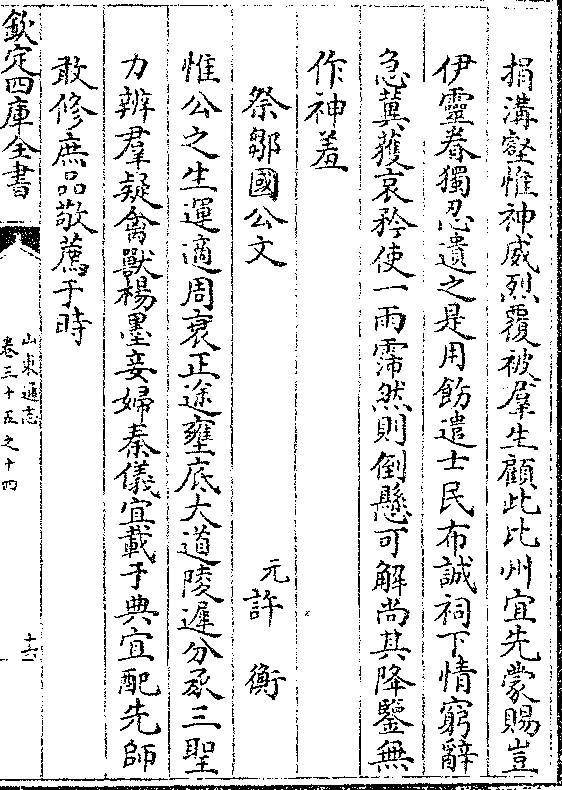 捐溝壑惟神威烈覆被羣生顧此比州宜先蒙賜豈
伊靈眷獨忍遺之是用飭遣士民布誠祠下情窮辭
急冀獲哀矜使一雨霈然則倒懸可解尚其降鑒無
作神羞
祭鄒國公文 元許衡
惟公之生運適周衰正途壅底大道陵遲分承三聖
力辨羣疑禽獸楊墨妾婦秦儀宜載于典宜配先師
敢修庶品敬薦于時
欽定四庫全書 山東通志 卷三十五之十四